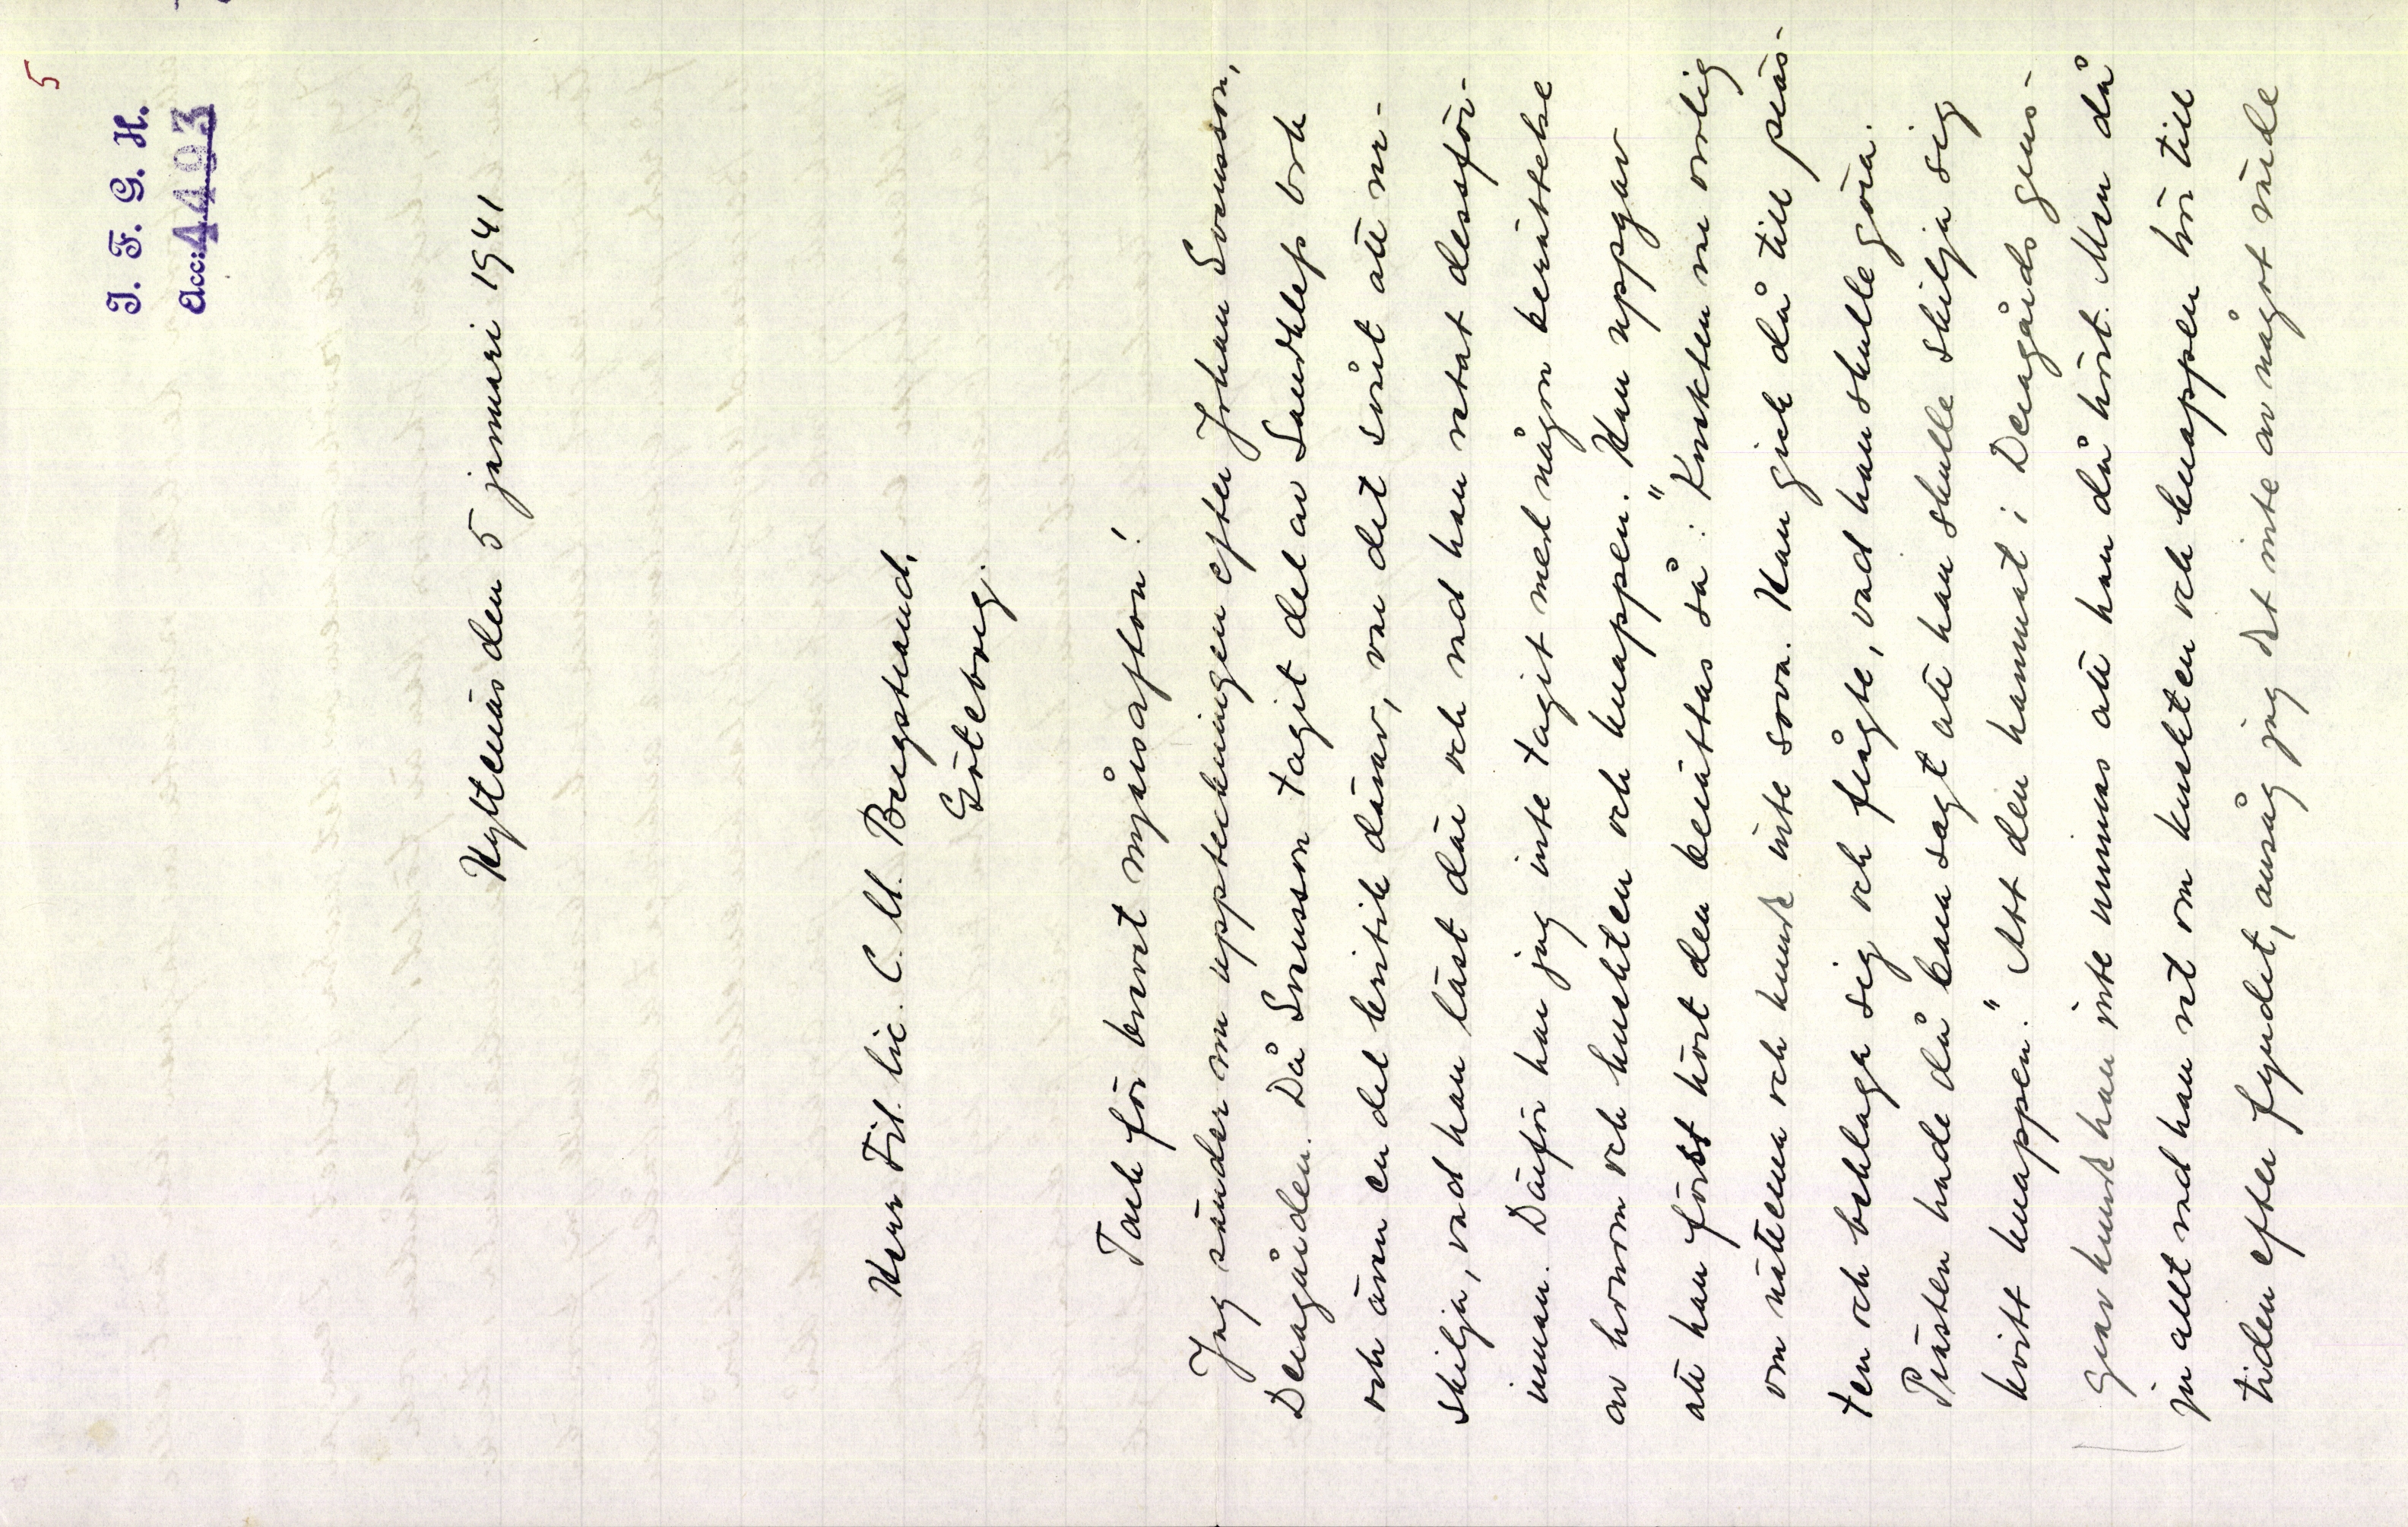 5
I. F. G. H.
Acc: 4493
Hyltenäs den 5 januari 1941
Herr Fil. lic. C. M. Bergstrand,
Göteborg.
Tack för brevet nyårsafton!
Jag sänder nu uppteckningen efter Johan Svensson,
Deragården. Då Svensson tagit del av Sandklefs bok
och även en del kritik därav, var det svårt att ur-
skilja, vad han läst där och vad han vetat dessför-
innan. Därför har jag inte tagit med någon berättelse
av honom och kusken och knappen. Han uppgav
att han först hört den berättas så: "Knekten var orolig
om nätterna och kunde inte sova. Han gick då till präs-
ten och beklaga sig och frågte, vad han skulle göra.
Prästen hade då bara sagt att han skulle skilja sig
kvitt knappen." Att den hamnat i Deragårds grus-
grav kunde han inte minnas att han då hört. Men då
ju allt vad han vet om kusken och knappen hör till
tiden efter fyndet, ansåg jag det inte av något värde